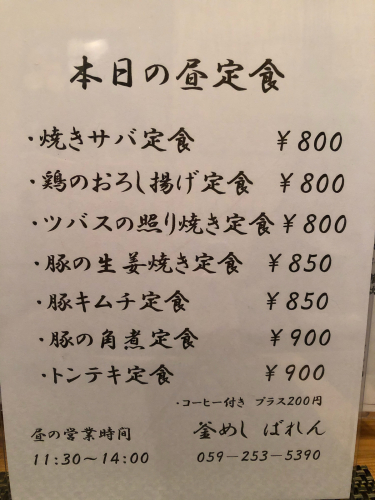 本日の昼定食
・焼きサバ定食 ￥800
・鶏のおろし揚げ定食 ￥800
・ツバスの照り焼き定食 ￥800
・豚の生姜焼き定食 ￥850
・豚キムチ定食 ￥850
・豚の角煮定食 ￥900
・トンテキ定食 ￥900
・コーヒー付き プラス200円
昼の営業時間 釜めし ばれん
11:30～14:00 059－253－5390